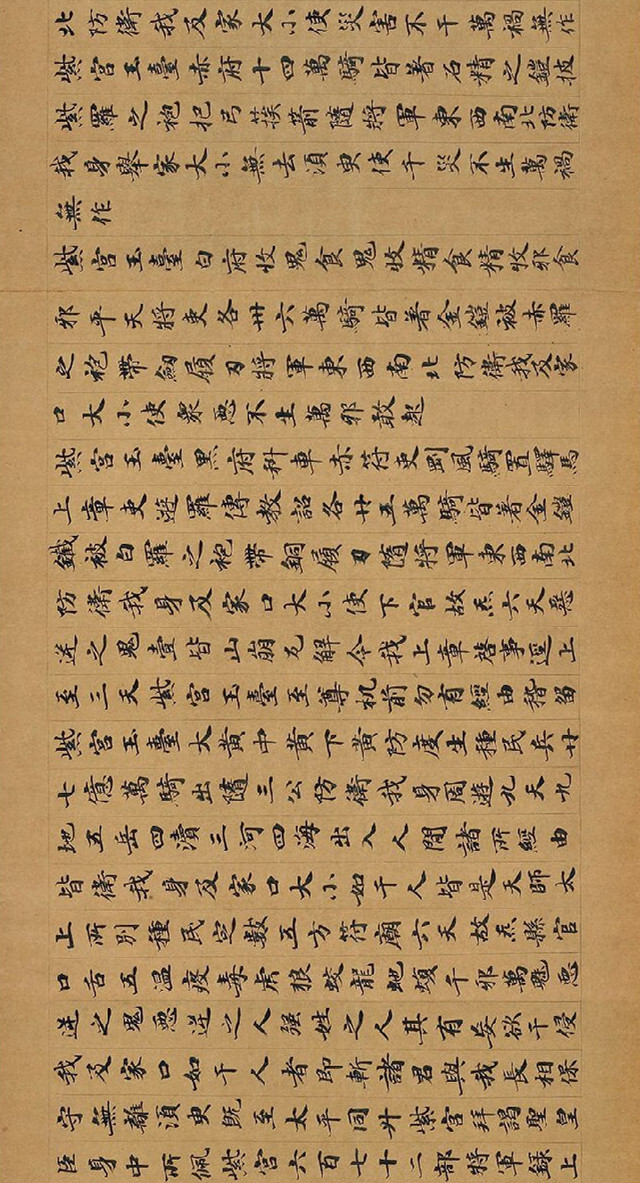 北防衛我及家大小使災害不干萬禍無作
紫宮玉臺赤府十四萬騎皆著石精之鎧披
紫羅之袍把弓挾箭隨將軍東西南北防衛
我身舉家大小無去湏臾使千災不生萬禍
無作
紫宮玉臺白府收鬼食鬼收精食精收邪食
邪平天將吏各卅六萬騎皆著金鎧被赤羅
之袍帶劔履刃將軍東西南北防衛我及家
口大小使衆惡不生萬邪敢起
紫宮玉臺黑府科車赤符吏罡風騎置驛馬
上章吏遊羅傳教詔各廿五萬騎皆著金鎧
鐵被白羅之袍帶銅履刃隨將軍東西南北
防衛我身及家口大小使下官故炁六天惡
逆之鬼壹皆山崩瓦解令我上章啓事逕上
至三天紫宮玉臺至尊机前勿有經由稽留
紫宮玉臺太黃中黃下黃防度生種民兵廿
七億萬騎出隨三公防衛我身周遊九天九
地五岳四瀆三河四海出入人間諸所經由
皆衛我身及家口大小如干人皆是天師太
上所別種民定數五方符廟六天故炁縣官
口舌五温疫毒虎狼蛟龍虵蝮千邪萬魅惡
逆之鬼惡逆之人強姓之人其有妄欲干侵
我及家口如干人者即斬諸君與我長相保
守無離湏臾既至太平同升紫宮拜謁聖皇
臣身中所佩紫宮六百七十二部將軍録上